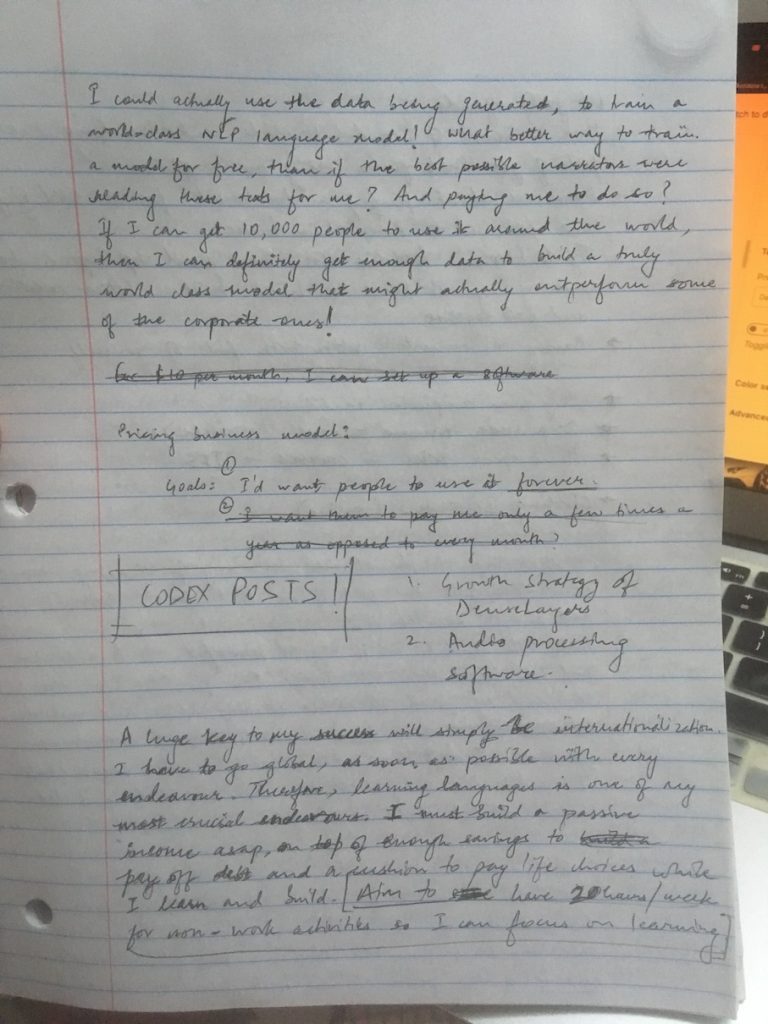 I could actually use the data being generated, to train a
world-class NLP language model! What better way to train
a model for free, than if the best possible narrators were
reading these texts for me? And paying me to do so?
If I can get 10,000 people to use it around the world,
then I can definitely get enough data to build a truly
world class model that might actually outperform some
of the corporate ones!
for $10 per month, I can set up a software
Pricing business model:
①
Goals: I'd want people to use it forever.
② I want them to pay me only a few times a
year as opposed to every month?
CODEX POSTS!
1. Growth Strategy of
DenseLayers
2. Audio processing
software.
A huge key to my success will simply be internationalization.
I have to go global, as soon as possible with every
endeavour. Therefore, learning languages is one of my
most crucial endeavours. I must build a passive
income asap, on top of enough savings to build a
pay off debt and a cushion to pay life choices while
I learn and build. [Aim to have 20 hours/week
for non-work activities so I can focus on learning]
tch to d
Toggli
Color se
Advanced